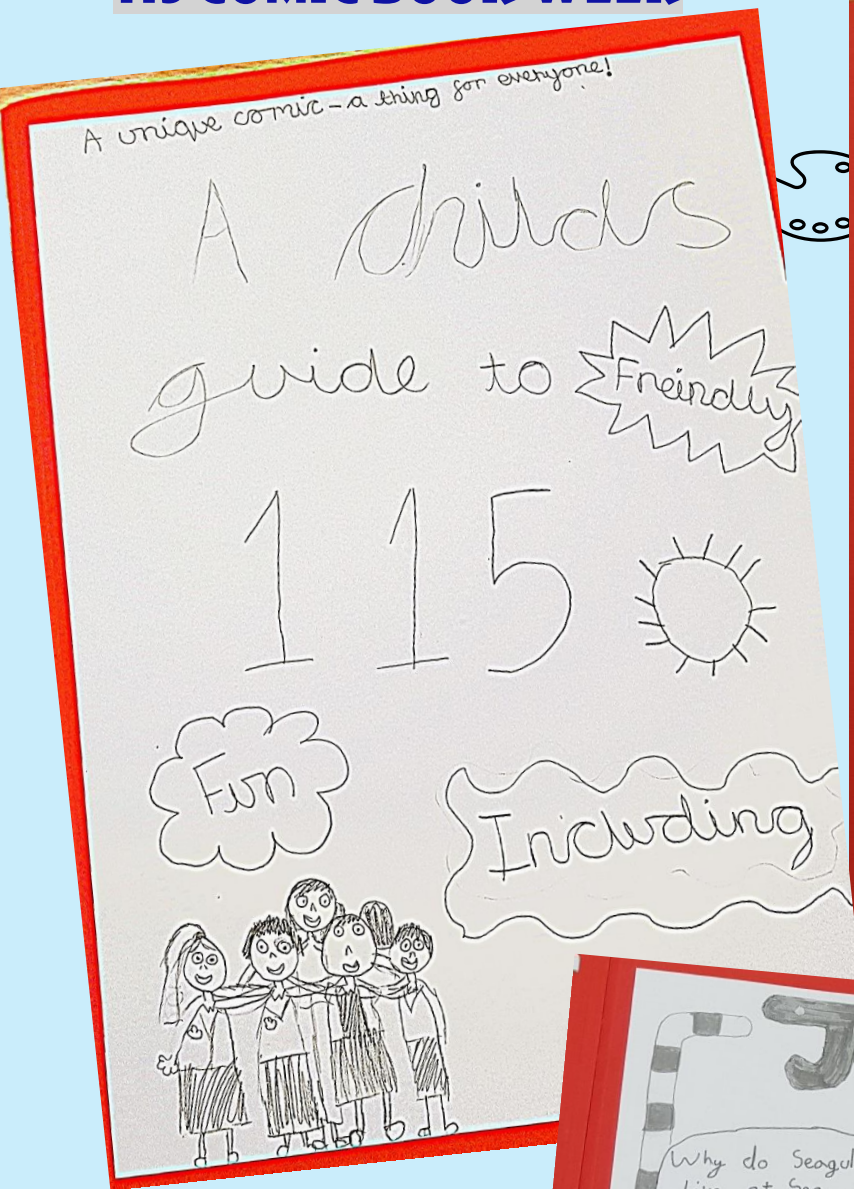 A unique comic - a thing for everyone!
A childs
guide to Freindly
115
Fun
Including
J
Why do Seagul